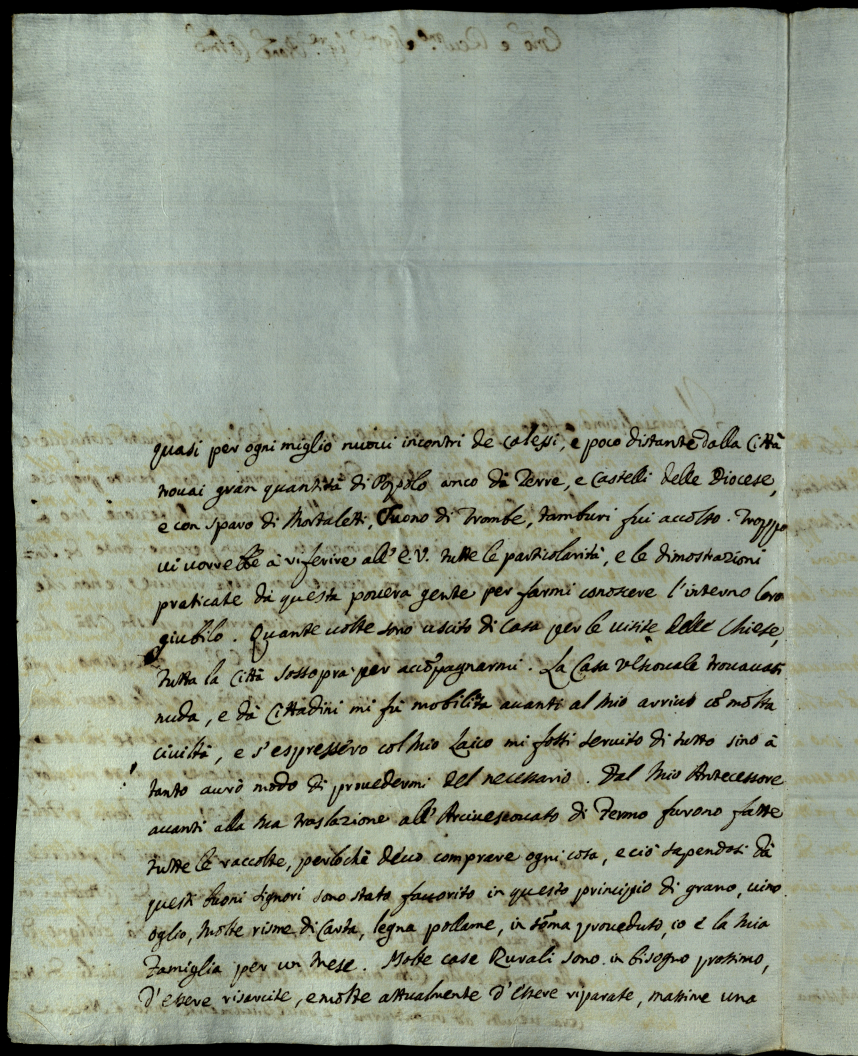 quasi per ogni miglio nuovi incontri de calessi, e poco distante dalla Città
trovai gran quantità di Popolo anco da Terre, e Castelli delle Diocese,
e con sparo di Mortaletti, suono di Trombe, tamburi fui accolto. Troppo
vi vorrebbe à riferire all'E.V. tutte le particolarità, e le dimostrazioni
praticate da questa povera gente per farmi conoscere l'interno loro
giubilo. Quante volte sono uscito di Casa per le visite delle Chiese,
tutta la Città sossopra per accōpagnarmi. La Casa Vescovale trovavasi
nuda, e dà Cittadini mi fù mobilita avanti al mio arrivo cō molta
civiltà, e s'espressero col mio Laico mi fossi servito di tutto sino à
tanto avrò modo di provedermi del necessario. Dal mio Antecessore
avanti alla sua traslazione all'Arcivescovato di Fermo furono fatte
tutte le raccolte, perloche devo comprare ogni cosa, e ciò sapendosi dà
questi buoni signori sono stato favorito in questo principio di grano, vino
oglio, molte risme di Carta, legna pollame, in sōma proveduto, io e la mia
Famiglia per un mese. Molte case Rurali sono in bisogno prossimo,
d'essere risarcite, e molte attualmente d'essere riparate, massime una